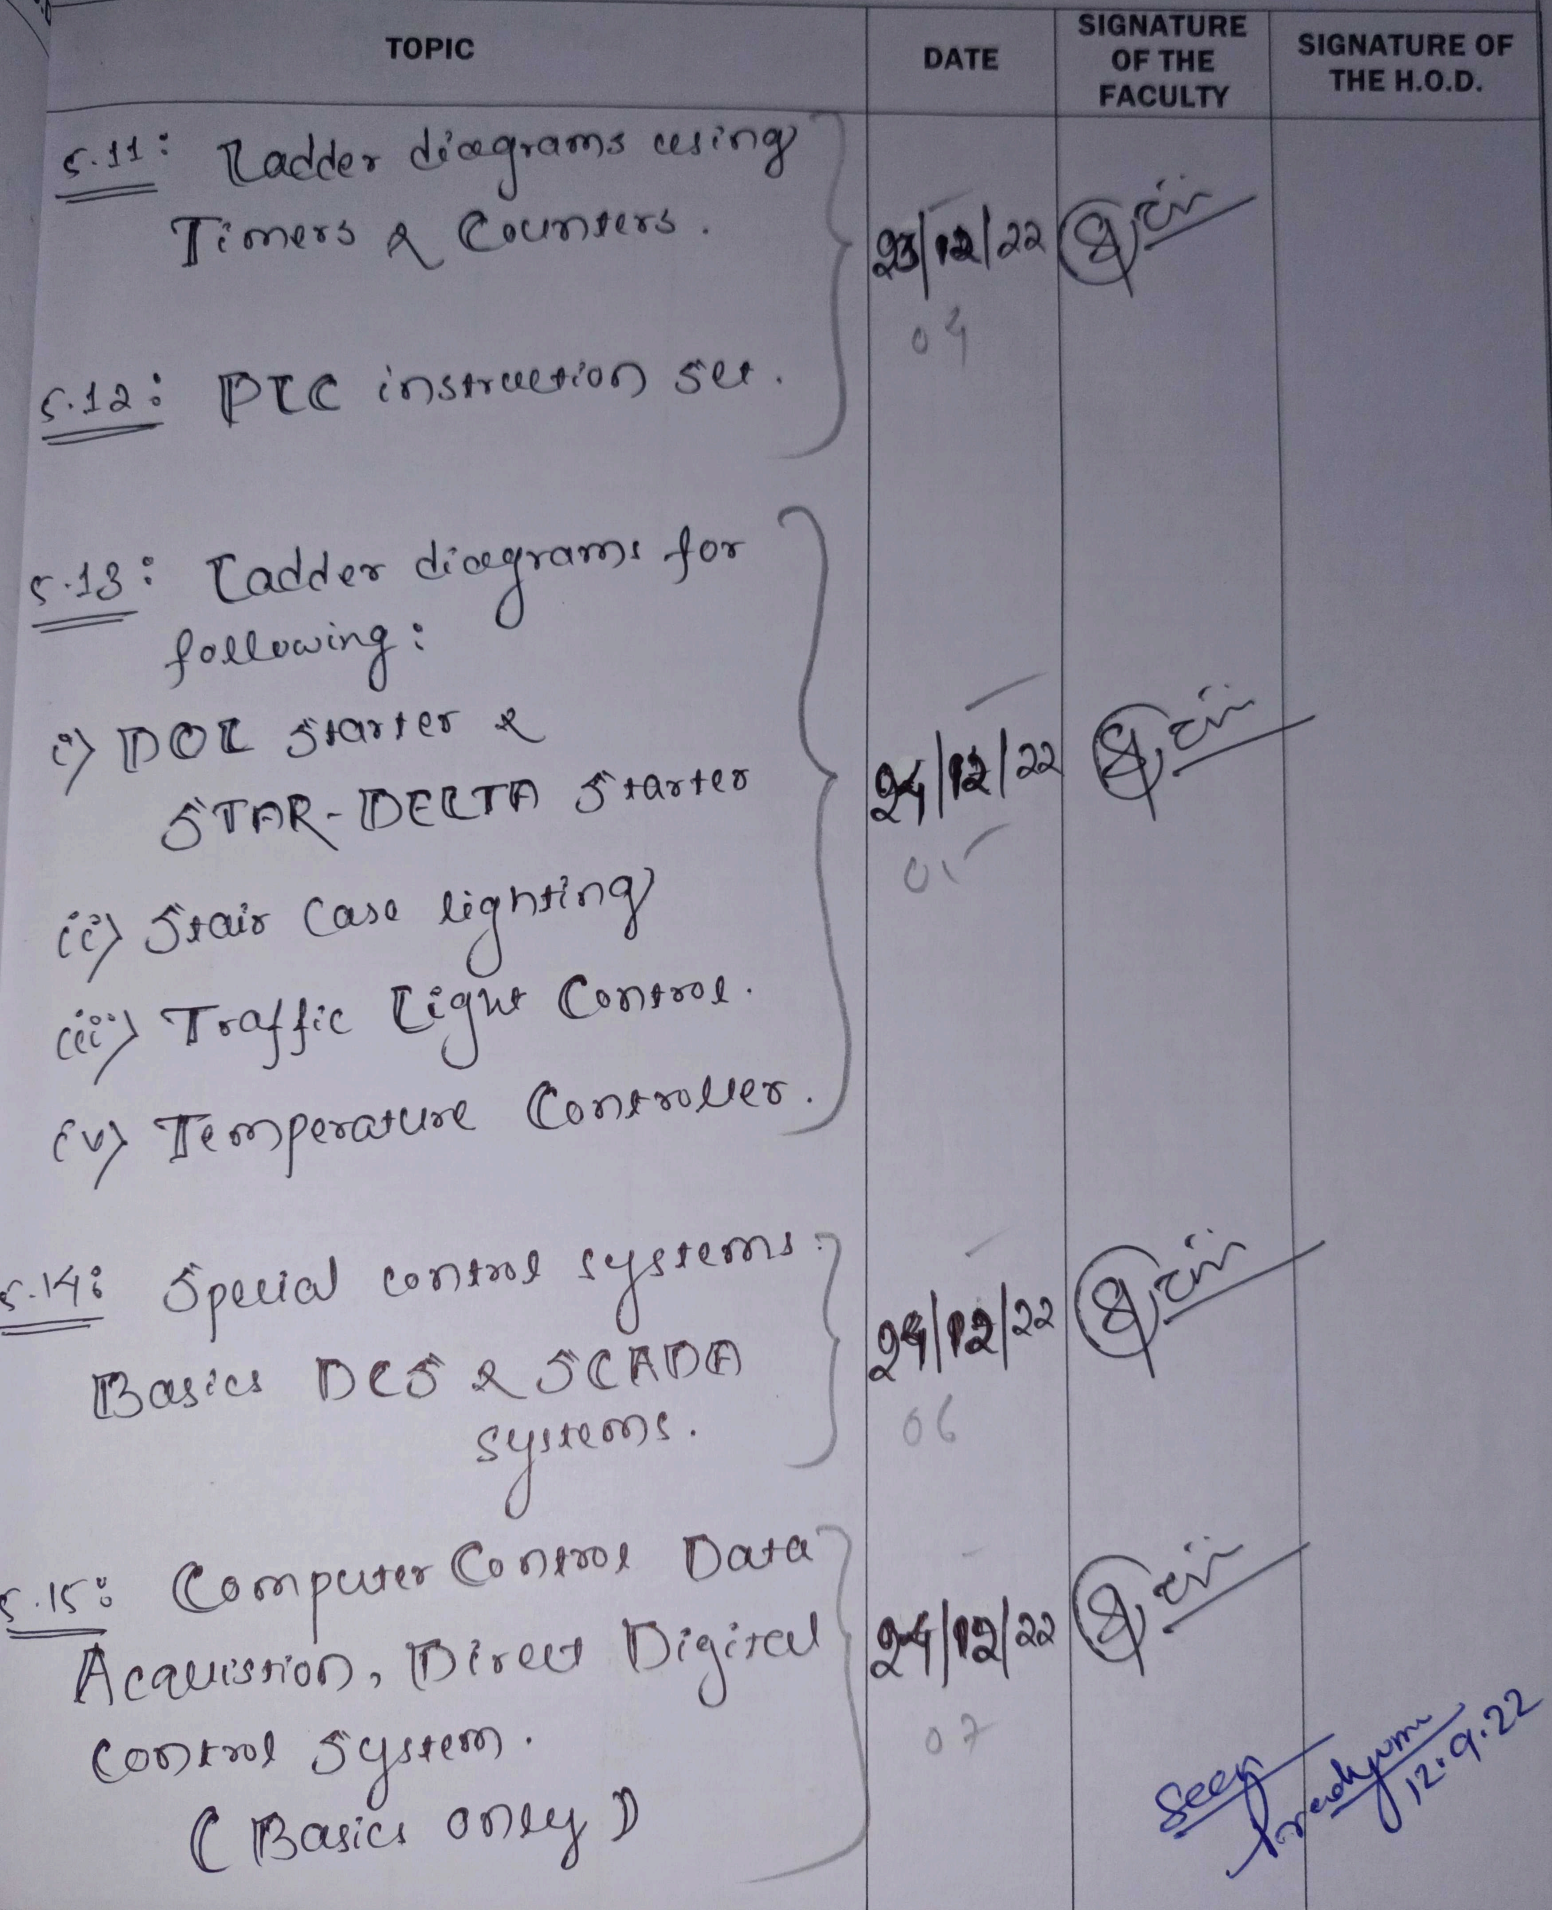 TOPIC
DATE
SIGNATURE OF THE FACULTY
SIGNATURE OF THE H.O.D.
5.11: Ladder diagrams using
Timers & Counters.
23/12/22
04
5.12: PLC instruction set.
5.13: Ladder diagrams for
following:
i) DOL Starter &
STAR-DELTA Starter
24/12/22
05
ii) Stair Case lighting
iii) Traffic Light Control.
iv) Temperature Controller.
5.14: Special control systems:
Basics DCS & SCADA
systems.
24/12/22
06
5.15: Computer Control Data
Acquistion, Direct Digital
24/12/22
07
Control System.
(Basics only)
Seen
12.9.22